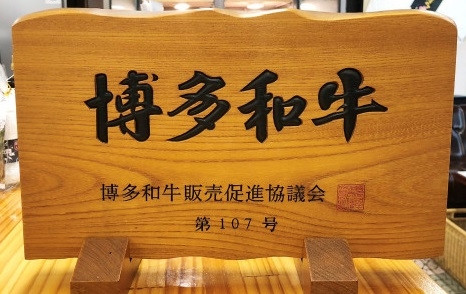 博多和牛
博多和牛販売促進協議会
第107号